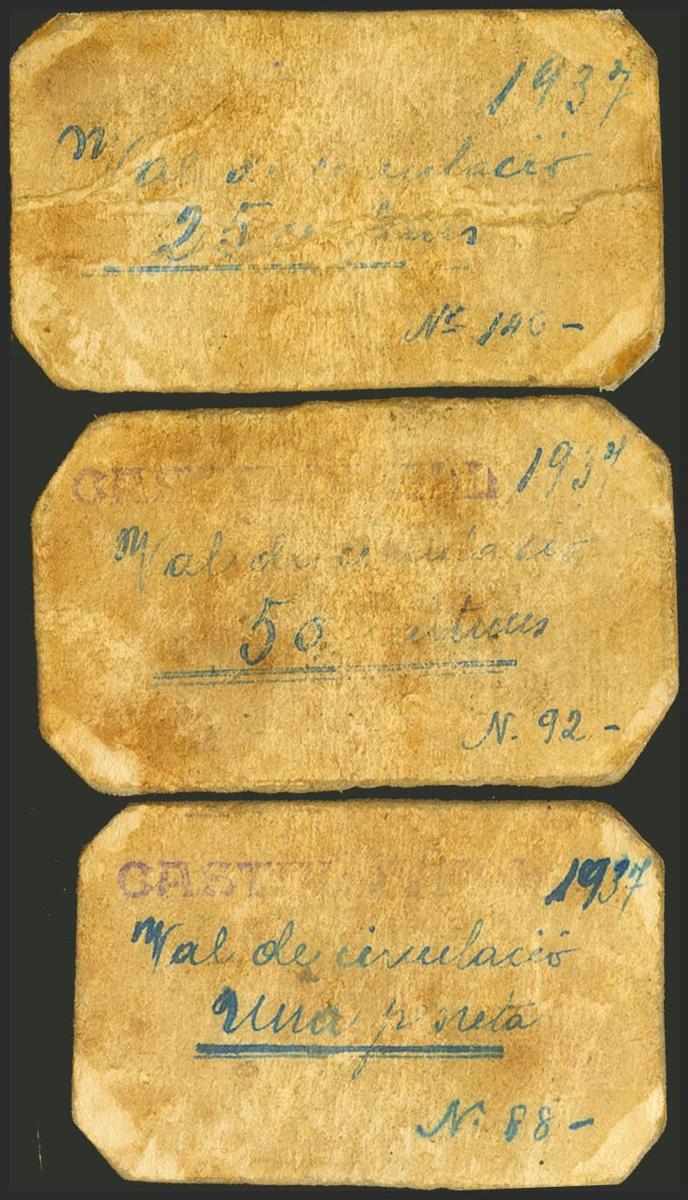 1937
Val de circulació
25 centims
Nº 146 -
1937
Val de circulació
50 centims
N. 92 -
1937
Val de circulació
Una pesseta
N. 88 -